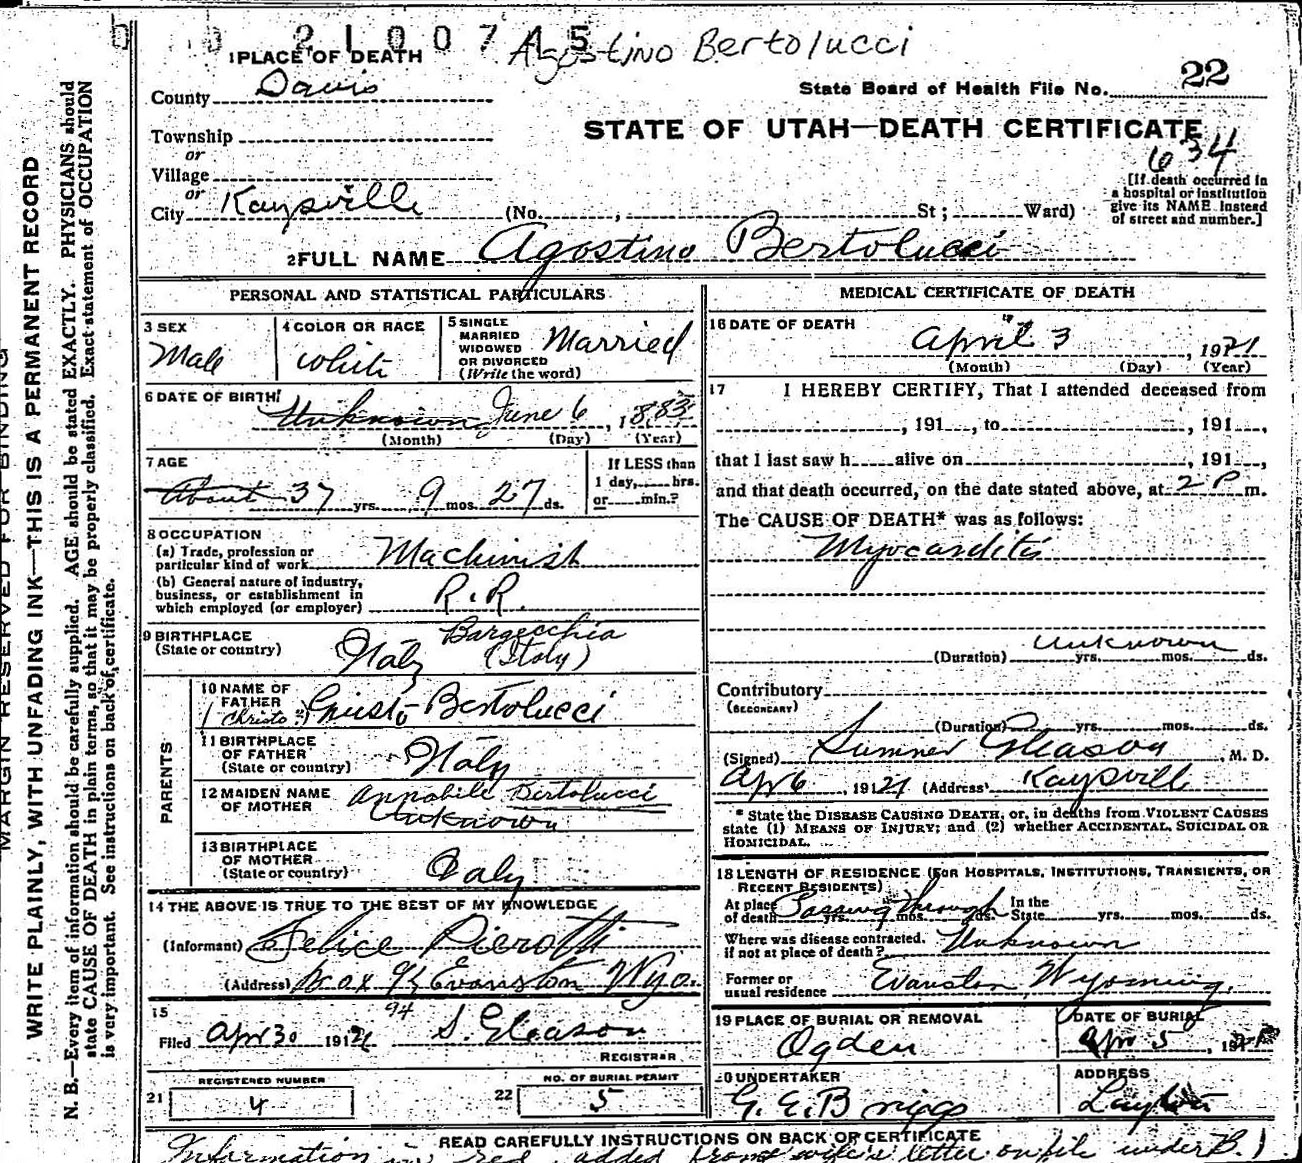 2100745 Agostino Bertolucci
1 PLACE OF DEATH
County Davis
State Board of Health File No. 22
Township
STATE OF UTAH—DEATH CERTIFICATE
or
634
Village
or
City Kaysville (No. , St ; Ward)
[If death occurred in
a hospital or institution
give its NAME instead
of street and number.]
2 FULL NAME Agostino Bertolucci
PERSONAL AND STATISTICAL PARTICULARS
3 SEX
Male
4 COLOR OR RACE
White
5 SINGLE
MARRIED
WIDOWED
OR DIVORCED
(Write the word)
Married
6 DATE OF BIRTH
Unknown June 6, 1883
(Month) (Day) (Year)
7 AGE
About 37 yrs. 9 mos. 27 ds.
If LESS than
1 day, hrs.
or min.?
8 OCCUPATION
(a) Trade, profession or
particular kind of work Machinist
(b) General nature of industry,
business, or establishment in
which employed (or employer) R.R.
9 BIRTHPLACE
(State or country)
Italy
Bargecchia
(Italy)
PARENTS
10 NAME OF
FATHER
Giusto Bertolucci
11 BIRTHPLACE
OF FATHER
(State or country) Italy
12 MAIDEN NAME
OF MOTHER
Annabile Bertolucci
Unknown
13 BIRTHPLACE
OF MOTHER
(State or country) Italy
14 THE ABOVE IS TRUE TO THE BEST OF MY KNOWLEDGE
(Informant) Felice Pierotti
(Address) Box 94 Evanston Wyo.
94
15
Filed Apr 30 1921 S. Gleason
REGISTRAR
21 REGISTERED NUMBER
4
22 NO. OF BURIAL PERMIT
5
MEDICAL CERTIFICATE OF DEATH
16 DATE OF DEATH
April 3, 1921
(Month) (Day) (Year)
17 I HEREBY CERTIFY, That I attended deceased from
, 191 , to , 191 ,
that I last saw h alive on , 191 ,
and that death occurred, on the date stated above, at 2 P m.
The CAUSE OF DEATH* was as follows:
Myocarditis
Unknown
(Duration) yrs. mos. ds.
Contributory
(SECONDARY)
(Duration) yrs. mos. ds.
(Signed) Sumner Gleason, M. D.
Apr 6, 1921 (Address) Kaysvill
* State the DISEASE CAUSING DEATH, or, in deaths from VIOLENT CAUSES
state (1) MEANS OF INJURY; and (2) whether ACCIDENTAL, SUICIDAL OR
HOMICIDAL.
18 LENGTH OF RESIDENCE (FOR HOSPITALS, INSTITUTIONS, TRANSIENTS, OR
RECENT RESIDENTS)
At place In the
of death yrs. mos. ds. State yrs. mos. ds.
Passing through
Where was disease contracted,
if not at place of death? Unknown
Former or
usual residence Evanston Wyoming.
19 PLACE OF BURIAL OR REMOVAL
Ogden
DATE OF BURIAL
Apr 5, 1921
20 UNDERTAKER
G. E. Briggs
ADDRESS
Layton
READ CAREFULLY INSTRUCTIONS ON BACK OF CERTIFICATE
Information in red added from wife's letter on file under B.)
MARGIN RESERVED FOR BINDING
WRITE PLAINLY, WITH UNFADING INK—THIS IS A PERMANENT RECORD
N. B.—Every item of information should be carefully supplied. AGE should be stated EXACTLY. PHYSICIANS should
state CAUSE OF DEATH in plain terms, so that it may be properly classified. Exact statement of OCCUPATION
is very important. See instructions on back of certificate.